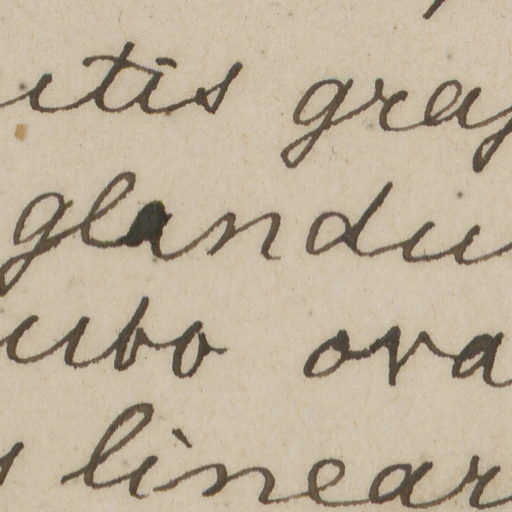 itis gra
glandu
ubo ova
s linear